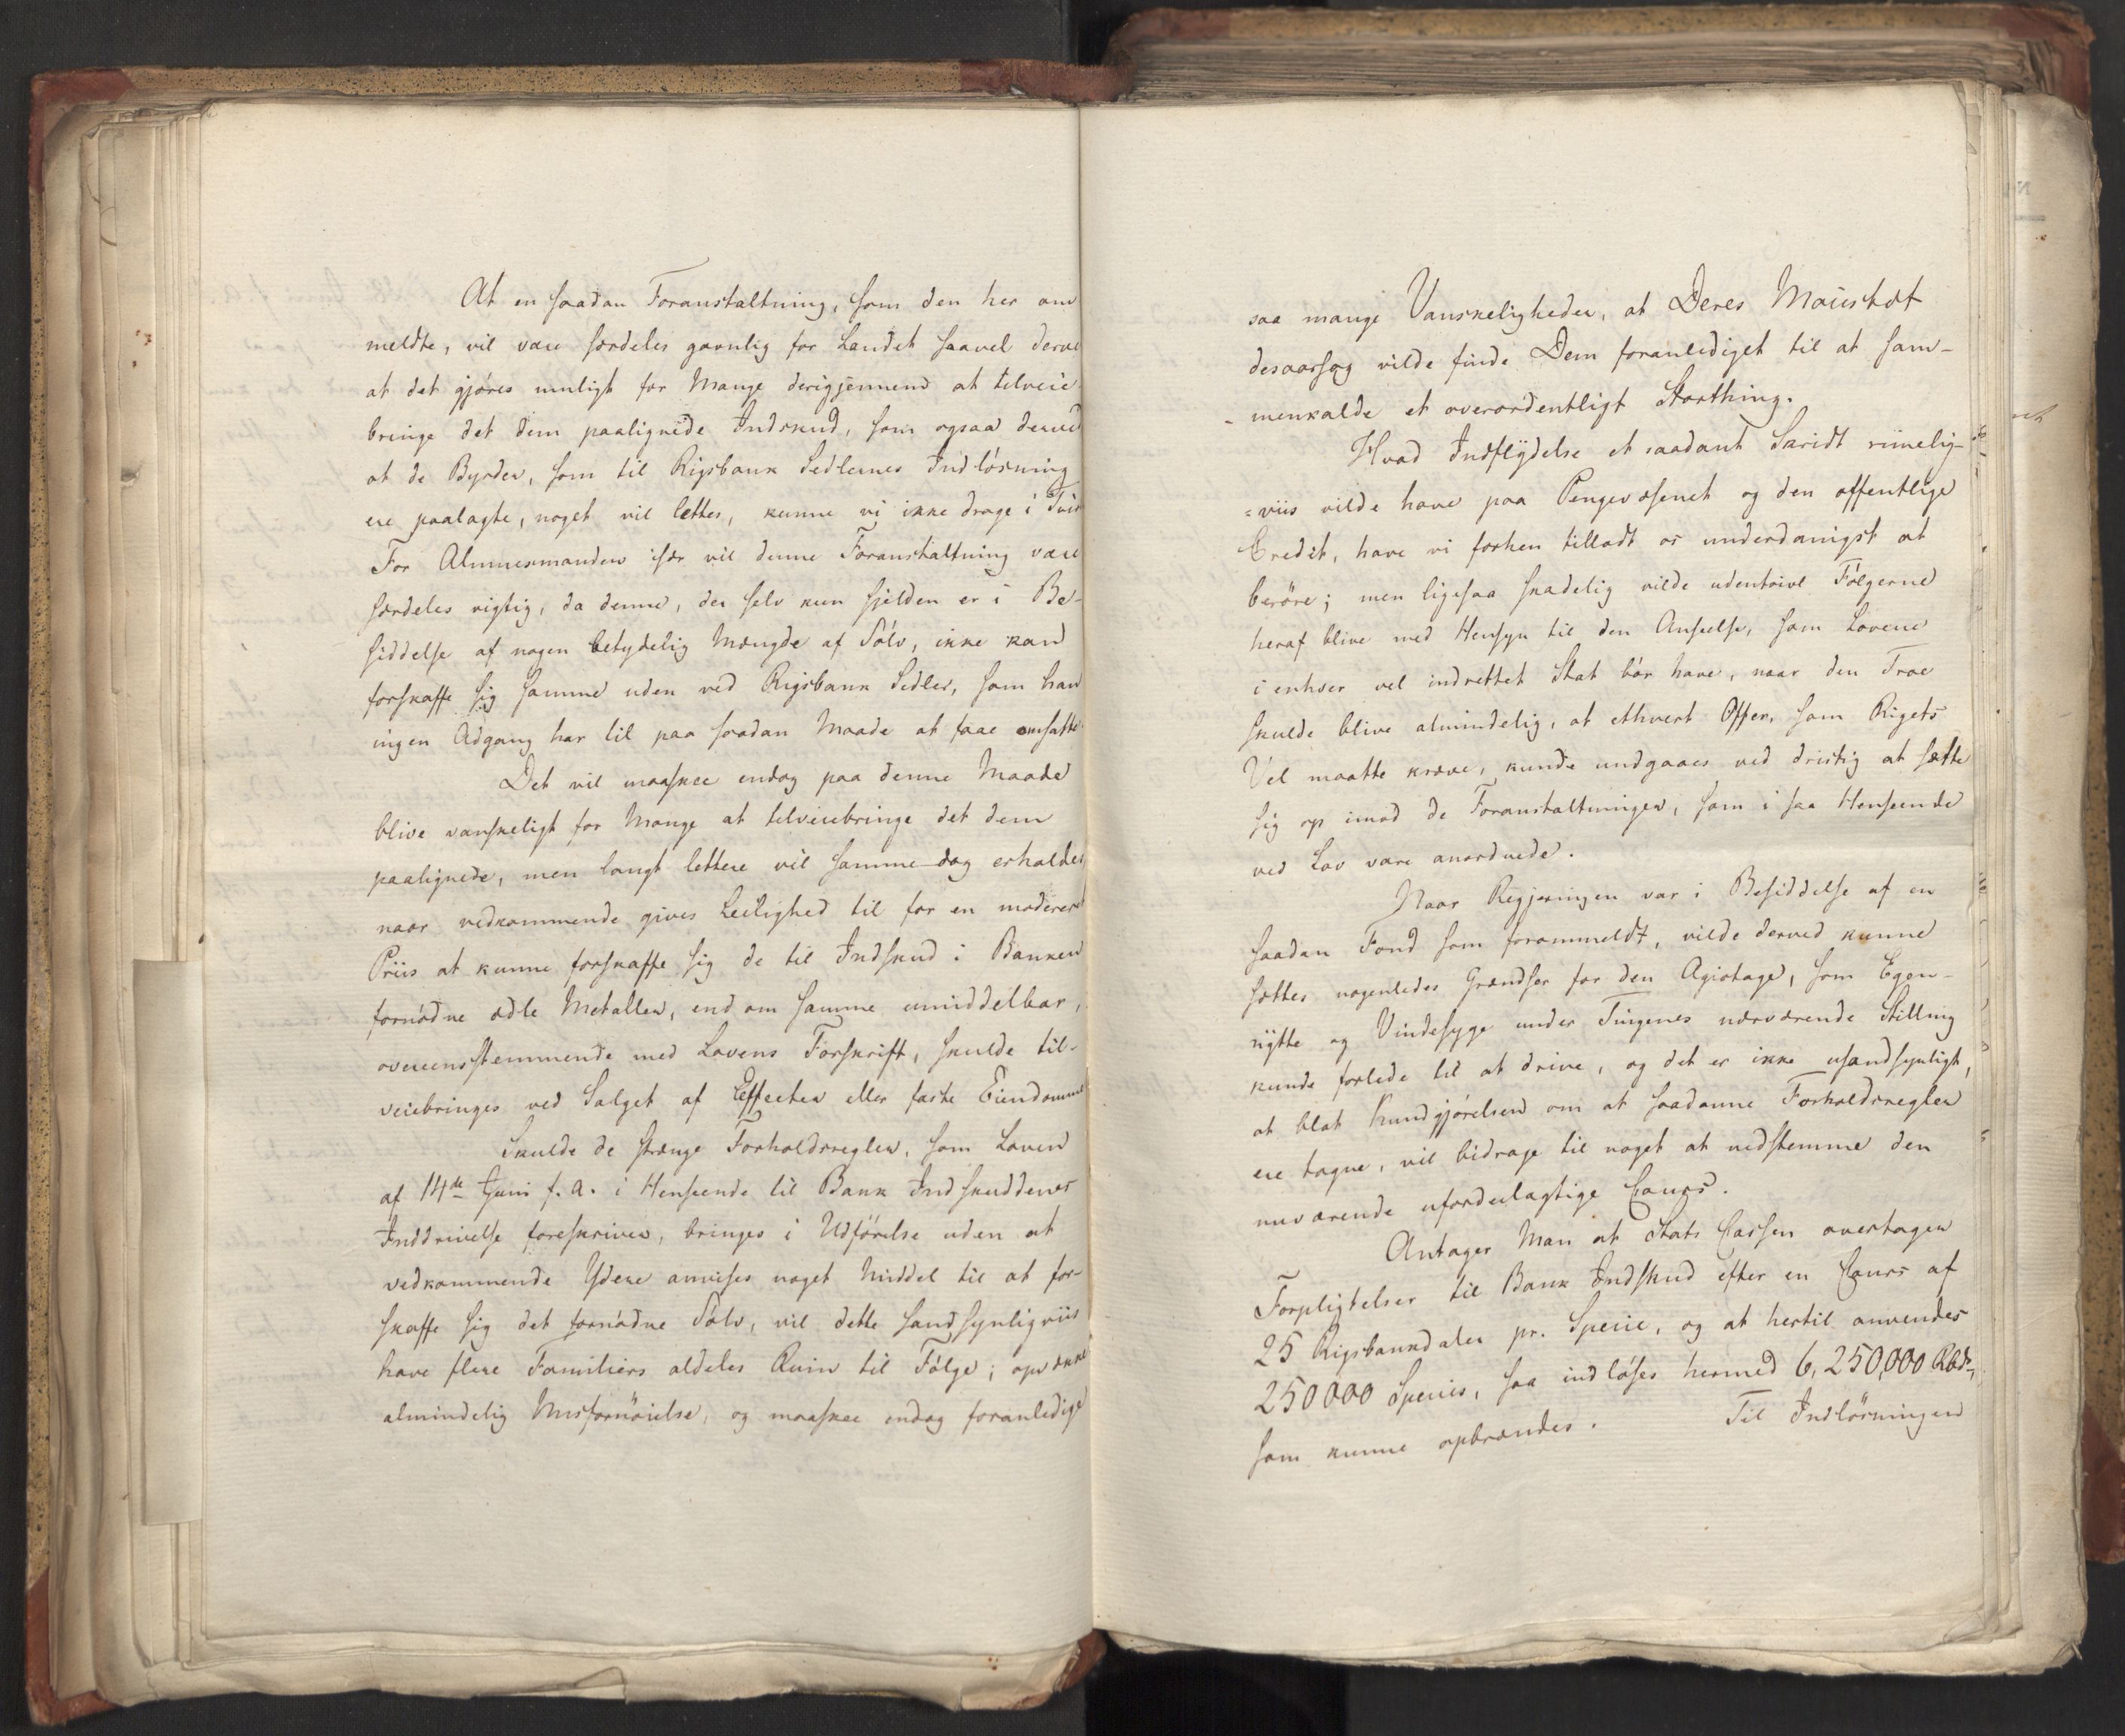 At en saadan Foranstaltning, som den her om
meldte, vil være særdeles gavnlig for Landet saavel derve
at det gjöres muligt for Mange derigjennem at tilveie
bringe det dem paalignede Indskud, som ogsaa derved
at de Byrder, som til Rigsbank Sedlernes Indlösning
ere paalagte, noget vil lettes, kunne vi ikke drage i Tvivl
For Almuesmanden især vil denne Foranstaltning være
særdeles vigtig, da denne, der selv kun sjelden er i Be-
siddelse af nogen betydelig Mængde af Sölv, ikke kan
forskaffe sig samme uden ved Rigsbank Sedler, som han
ingen Adgang har til paa saadan Maade at faae omsatte.
Det vil maaskee endog paa denne Maade
blive vanskeligt for Mange at tilveiebringe det dem
paalignede, men langt lettere vil samme dog erholdes
naar vedkommende gives Leilighed til for en moderere
Priis at kunne forskaffe sig de til Indskud i Banken
fornödne ædle Metaller, end om samme umiddelbar,
overeensstemmende med Lovens Forskrift, skulde til-
veiebringes ved Salget af Effecter eller faste Eiendomme
Skulde de strænge Forholdsregler, som Loven
af 14de Juni f. a. i Henseende til Bank Indskuddenes
Inddrivelse foreskriver, bringes i Udförelse uden at
vedkommende Ydere anvises noget Middel til at for-
skaffe sig det fornödne Sölv, vil dette sandsynligviis
have flere Familiers aldeles Ruin til Fölge; opvække
almindelig Misfornöielse, og maaskee endog foranledige
saa mange Vanskeligheder, at Deres Majestæt
desaarsag vilde finde Dem foranlediget til at sam-
menkalde et overordentligt Storthing.
Hvad Indflydelse et saadant Skridt rimelig-
=viis vilde have paa Pengevæsenet og den offentlige
Credit, have vi forhen tilladt os underdanigst at
beröre; men ligesaa skadelig vilde udentvivl Fölgerne
heraf blive med Hensyn til den Anseelse, som Lovene
i enhver vel indrettet Stat bör have, naar den Troe
skulde blive almindelig, at ethvert Offer, som Rigets
Vel maatte kræve, kunde undgaaes ved dristig at sætte
sig op imod de Foranstaltninger, som i saa Henseende
ved Lov vare anordnede.
Naar Regjeringen var i Besiddelse af en
saadan Fond som forommeldt, vilde derved kunne
sættes nogenledes Grændser for den Agiotage, som Egen-
nytte og Vindesyge under Tingenes nærværende Stilling
kunde forlede til at drive, og det er ikke usandsynligt,
at blot Kundgjörelsen om at saadanne Forholdsregler
ere tagne, vil bidrage til noget at nedstemme den
nuværende ufordeelagtige Cours.
Antager Man at Stats Cassen overtager
Forpligtelser til Bank Indskud efter en Cours af
25 Rigsbankdaler pr. Specie, og at hertil anvendes
250000 Species, saa indlöses hermed 6,250,000 Rbdr,
som kunne opbrændes. Til Indlösningen